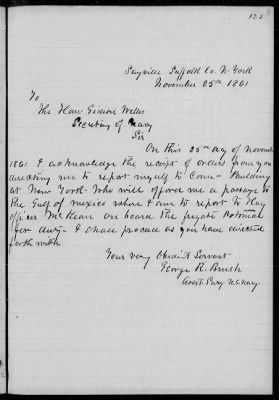 Sayville Suffolk Co. N. York
November 25th 1861
To
The Hon. Gideon Welles
Secretary of Navy
Sir
On this 25th day of November
1861 I acknowledge the receipt of orders from you
directing me to report myself to Com. Paulding
at New York. Who will offer me a passage to
the Gulf of Mexico where I am to report to Flag
officer McKean on board the frigate Potomac
for duty. I shall proceed as you have directed
forthwith
Your very Obedient Servant
George R. Brush
Asst. Surg U.S. Navy